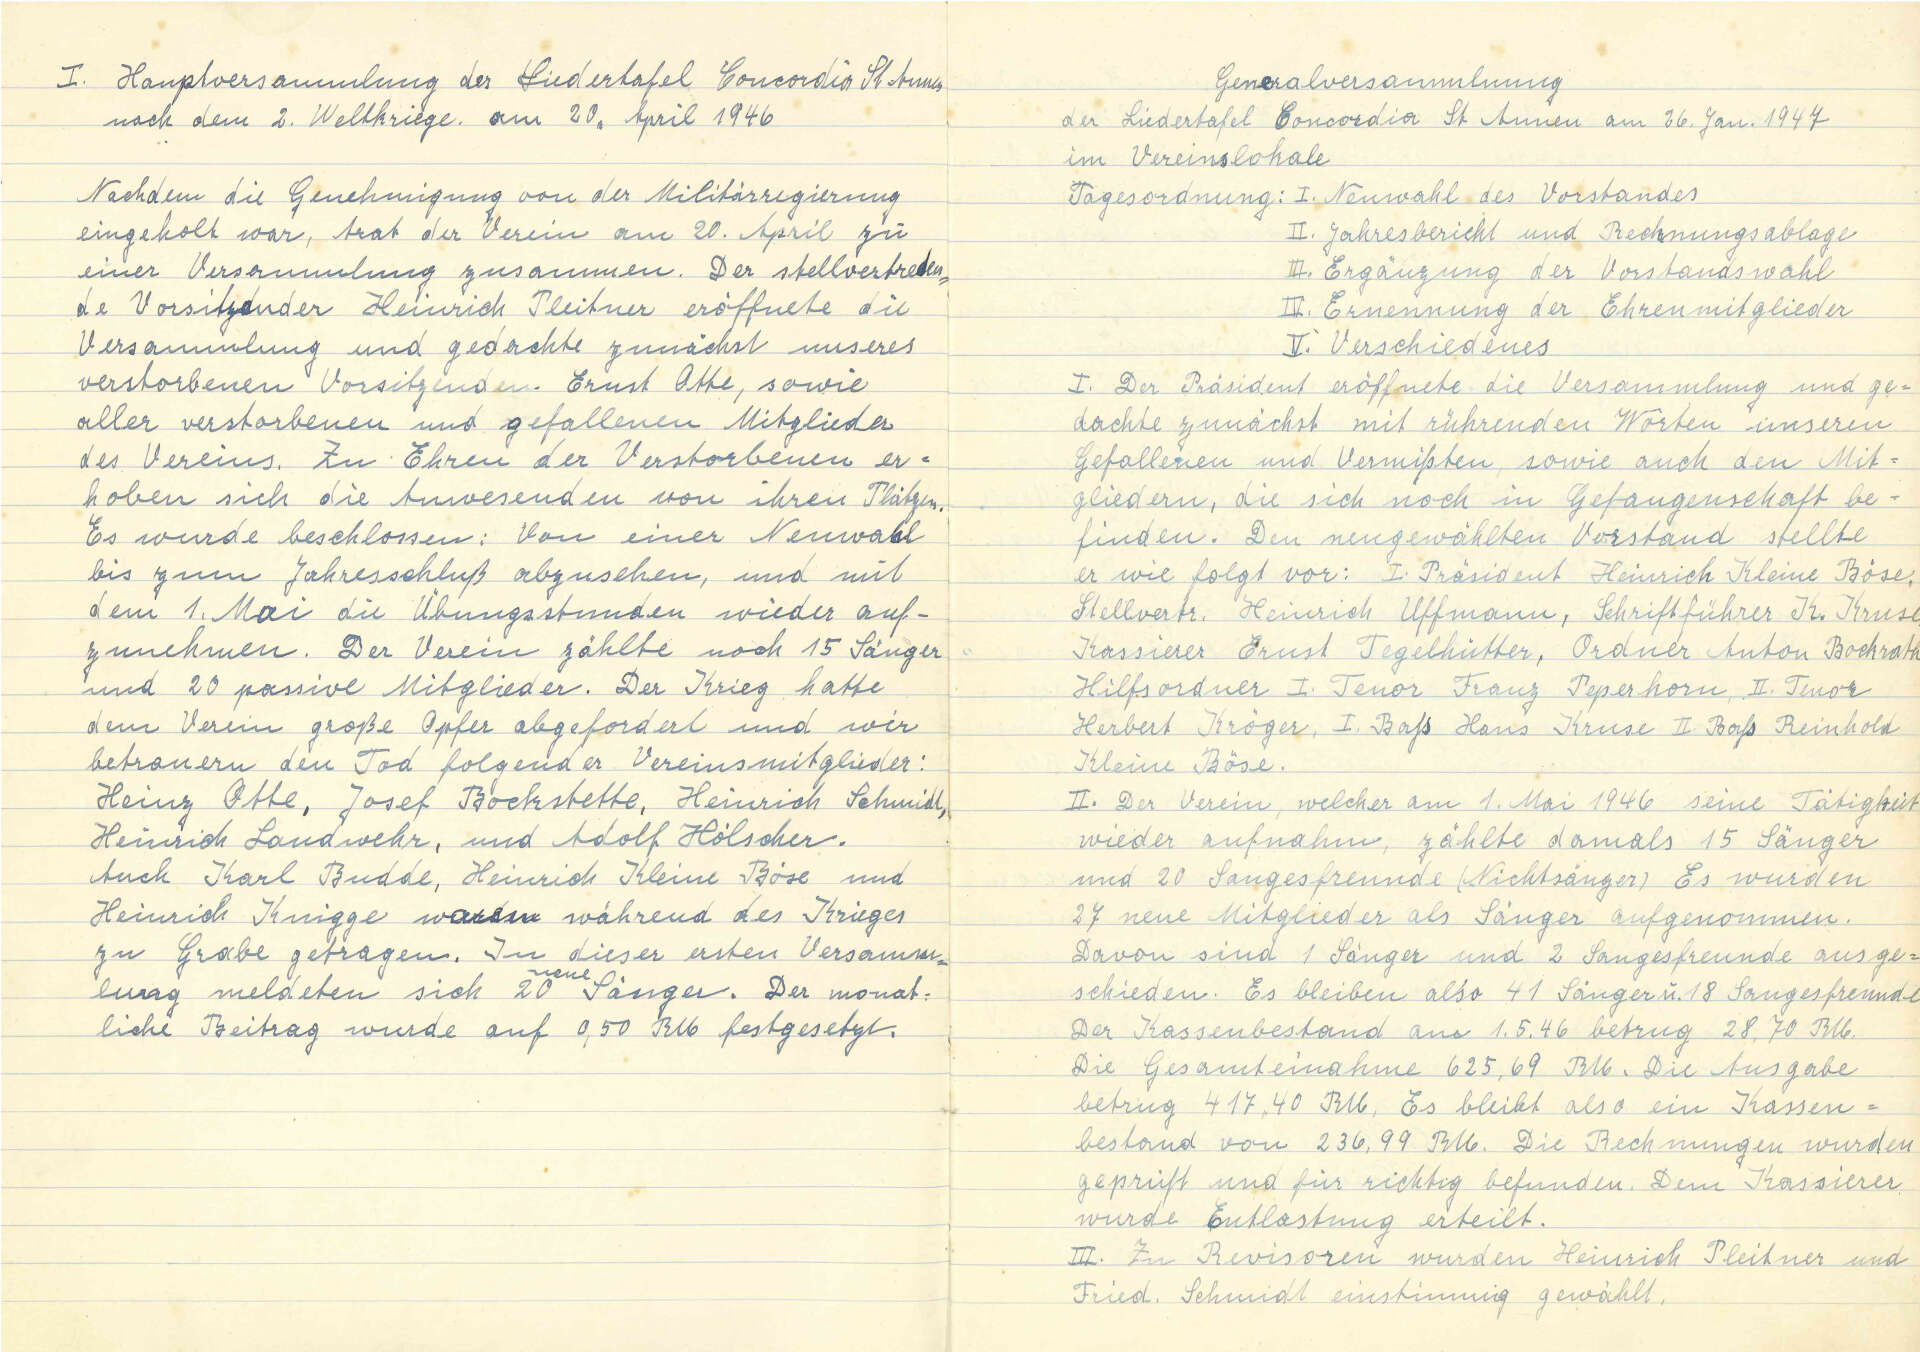 I. Hauptversammlung der Liedertafel Concordia St. Annen
nach dem 2. Weltkriege. am 20. April 1946
Nachdem die Genehmigung von der Militärregierung
eingeholt war, trat der Verein am 20. April zu
einer Versammlung zusammen. Der stellvertreten=
de Vorsitzender Heinrich Pleitner eröffnete die
Versammlung und gedachte zunächst unseres
verstorbenen Vorsitzenden. Ernst Otte, sowie
aller verstorbenen und gefallenen Mitglieder
des Vereins. Zu Ehren der Verstorbenen er=
hoben sich die Anwesenden von ihren Plätzen.
Es wurde beschlossen: Von einer Neuwahl
bis zum Jahresschluß abzusehen, und mit
dem 1. Mai die Übungsstunden wieder auf-
zunehmen. Der Verein zählte noch 15 Sänger
und 20 passive Mitglieder. Der Krieg hatte
dem Verein große Opfer abgefordert und wir
betrauern den Tod folgender Vereinsmitglieder:
Heinz Otte, Josef Bockstette, Heinrich Schmidt,
Heinrich Landwehr, und Adolf Hölscher.
Auch Karl Budde, Heinrich Kleine Böse und
Heinrich Knigge wurden während des Krieges
zu Grabe getragen. In dieser ersten Versamm=
lung meldeten sich 20 neue Sänger. Der monat=
liche Beitrag wurde auf 0,50 RM festgesetzt.
Generalversammlung
der Liedertafel Concordia St Annen am 26. Jan. 1947
im Vereinslokale
Tagesordnung: I. Neuwahl des Vorstandes
II. Jahresbericht und Rechnungsablage
III. Ergänzung der Vorstandswahl
IIII. Ernennung der Ehrenmitglieder
V. Verschiedenes
I. Der Präsident eröffnete die Versammlung und ge=
dachte zunächst mit rührenden Worten unseren
Gefallenen und Vermißten, sowie auch den Mit=
gliedern, die sich noch in Gefangenschaft be=
finden. Den neugewählten Vorstand stellte
er wie folgt vor: I. Präsident Heinrich Kleine Böse,
Stellvertr. Heinrich Uffmann, Schriftführer K. Kruse,
Kassierer Ernst Tegelhütter, Ordner Anton Bockrath
Hilfsordner I. Tenor Franz Peperkorn, II. Tenor
Herbert Kröger, I. Baß Hans Kruse II Baß Reinhold
Kleine Böse.
II. Der Verein, welcher am 1. Mai 1946 seine Tätigkeit
wieder aufnahm, zählte damals 15 Sänger
und 20 Sangesfreunde (Nichtsänger) Es wurden
27 neue Mitglieder als Sänger aufgenommen.
Davon sind 1 Sänger und 2 Sangesfreunde ausge=
schieden. Es bleiben also 41 Sänger u. 18 Sangesfreunde
Der Kassenbestand am 1.5.46 betrug 28,70 RM.
Die Gesamteinahme 625,69 RM. Die Ausgabe
betrug 417,40 RM, Es bleibt also ein Kassen=
bestand von 236,99 RM. Die Rechnungen wurden
geprüft und für richtig befunden. Dem Kassierer
wurde Entlastung erteilt.
III. Zu Revisoren wurden Heinrich Pleitner und
Fried. Schmidt einstimmig gewählt.